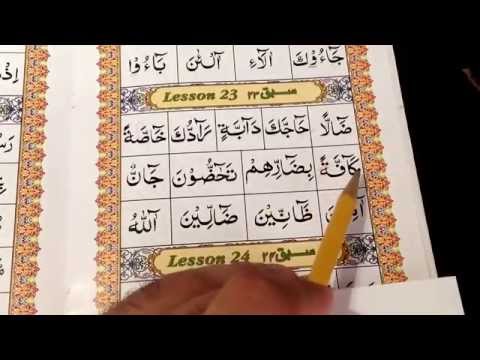 جَآءُوْكَ اٰلَآءِ آلْـٰٔنَ بَآءُوْا
Lesson 23 سبق ۲۳
ضَآلًّا حَآجَّكَ دَآبَّةٍ رَآدُّكَ خَآصَّةً
كَآفَّةً بِضَآرِّهِمْ تَحٰٓضُّوْنَ جَآنٌّ
ظَآنِّيْنَ ضَآلِّيْنَ آللّٰهُ
Lesson 24 سبق ۲۴